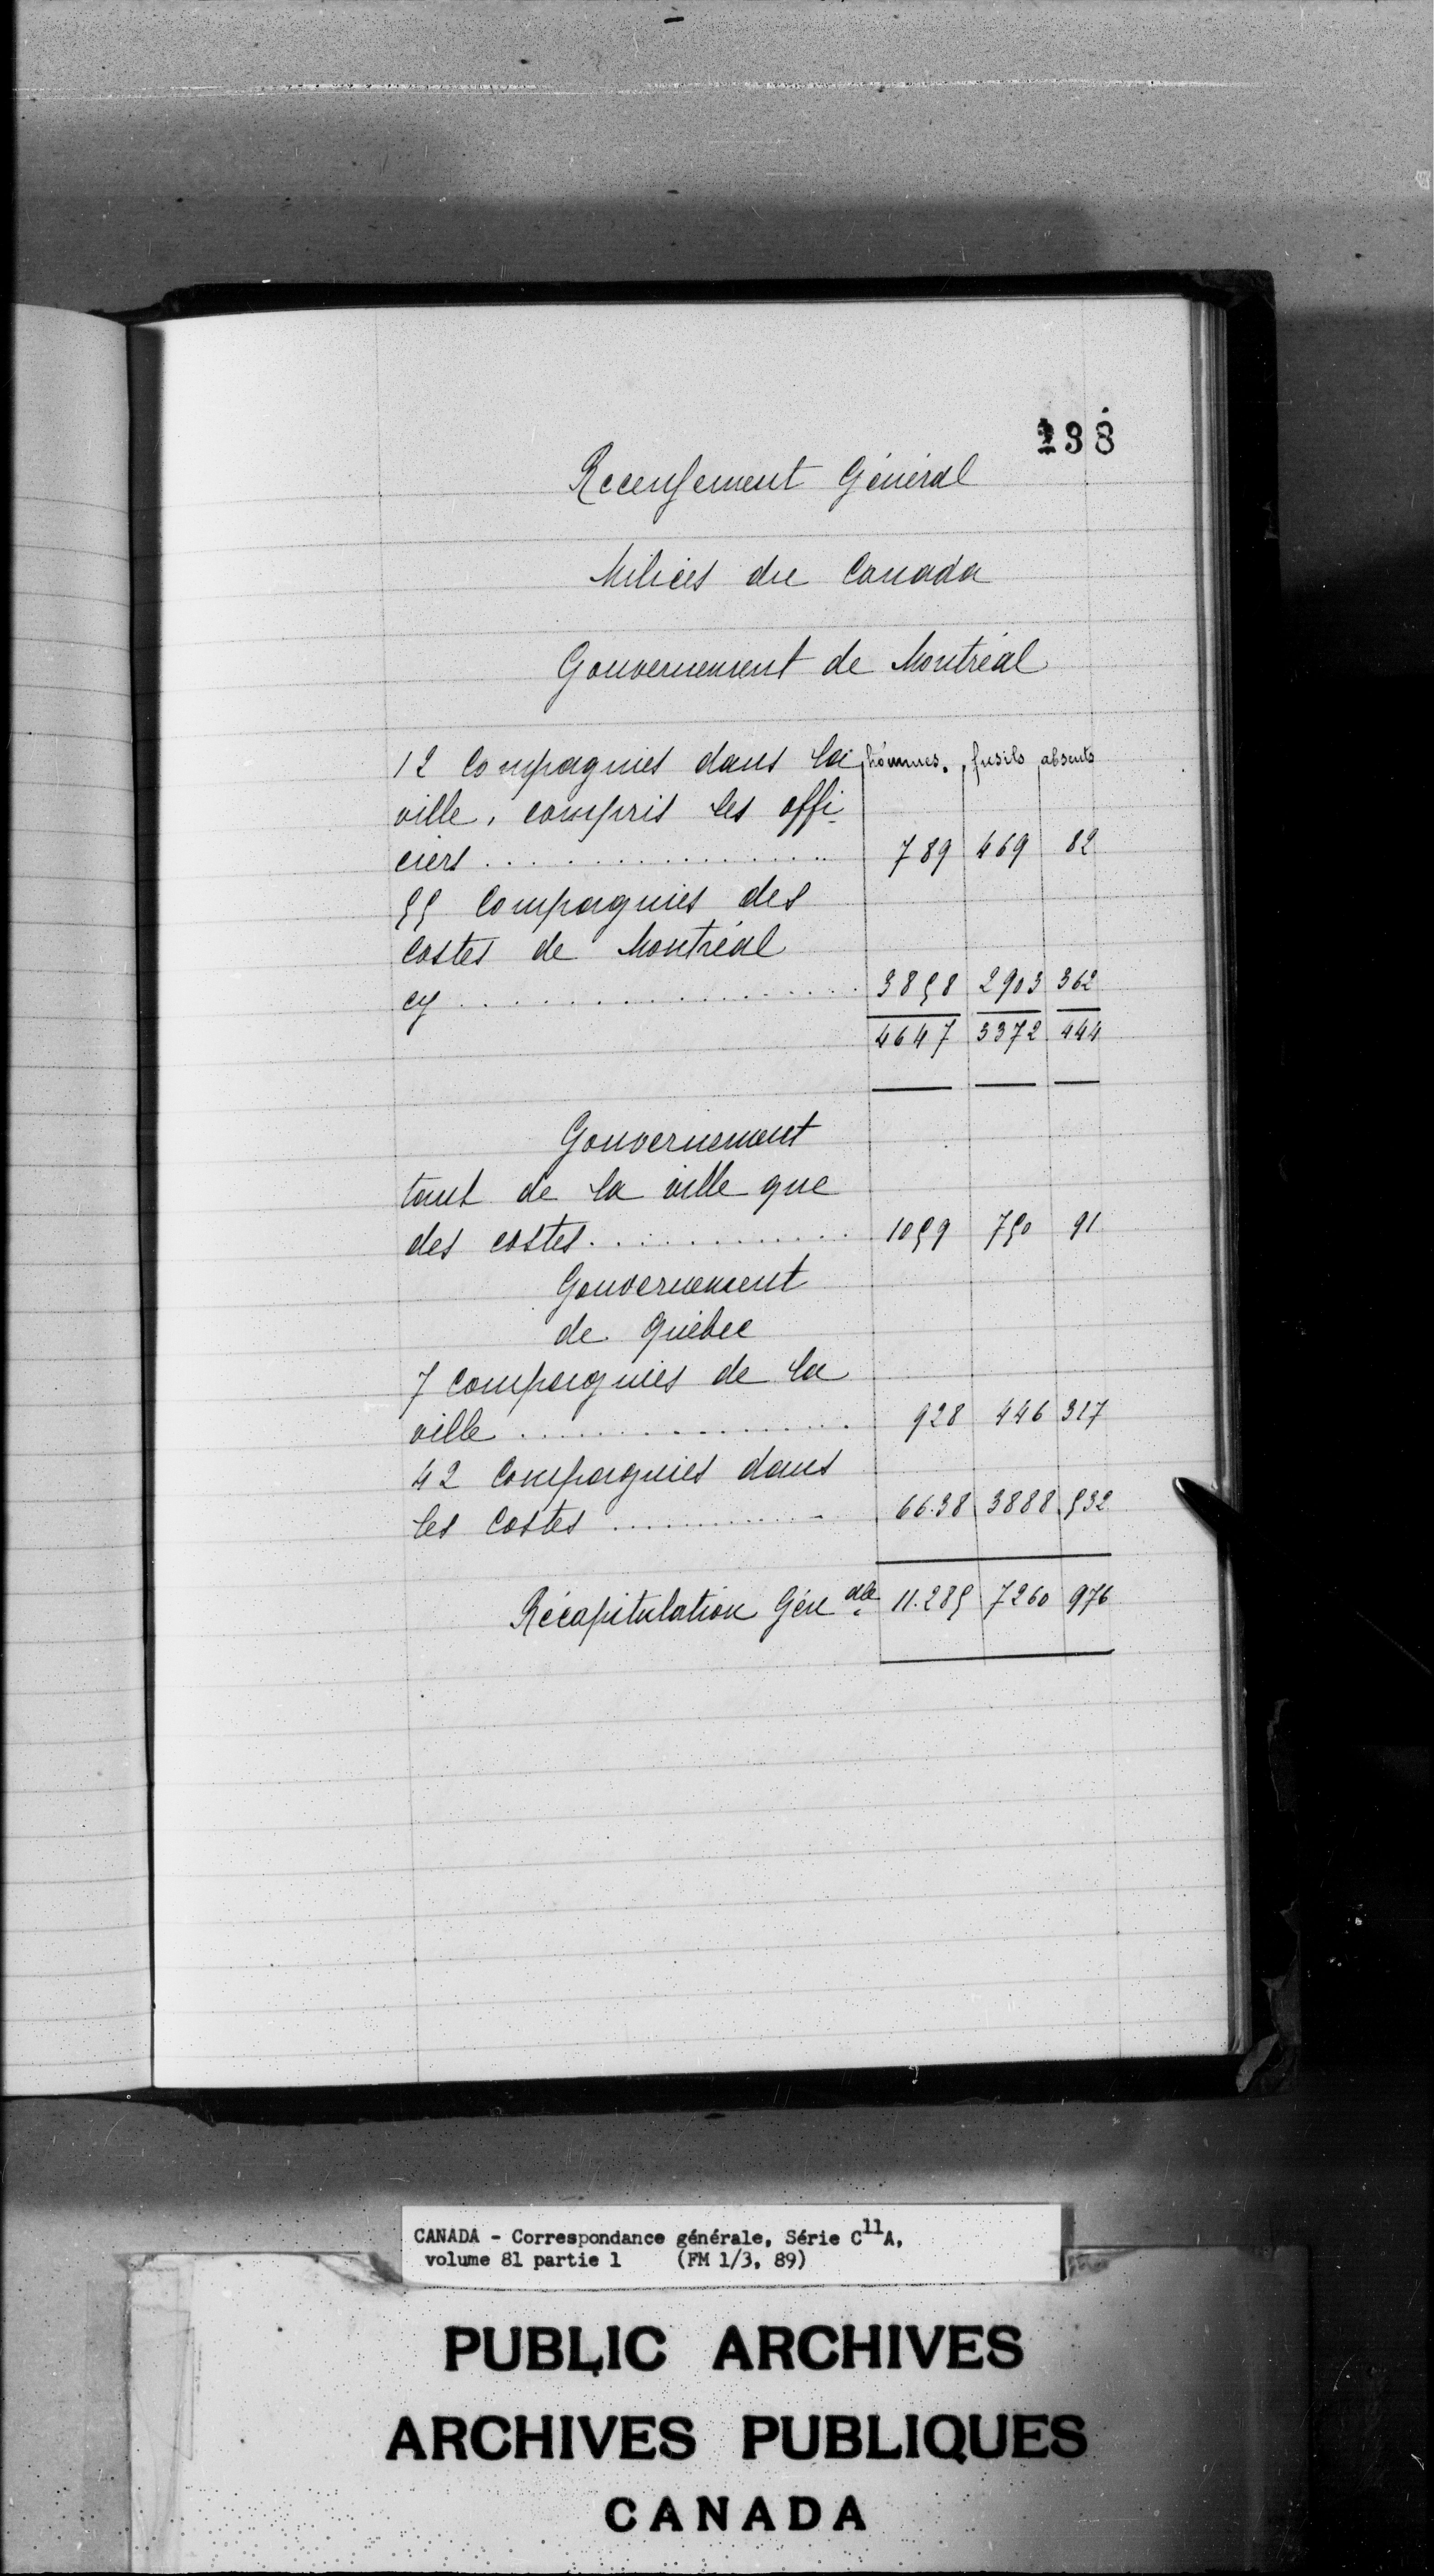 238
Recensement Général
Milices du Canada
Gouvernement de Montréal
12 Compagnies dans la hommes. fusils absents
ville, compris les offi-
ciers ................ 789 469 82
55 Compagnies des
Costes de Montréal
cy ................... 3858 2903 362
4647 3372 444
Gouvernement
tant de la ville que
des costes ............. 1059 750 91
Gouvernement
de Québec
7 Compagnies de la
ville ................ 928 446 317
42 Compagnies dans
les Costes ............. 66.38 3888 532
Récapitulation Gén.alle 11.285 7260 976
CANADA - Correspondance générale, Série C11A,
volume 81 partie 1 (FM 1/3, 89)
PUBLIC ARCHIVES
ARCHIVES PUBLIQUES
CANADA